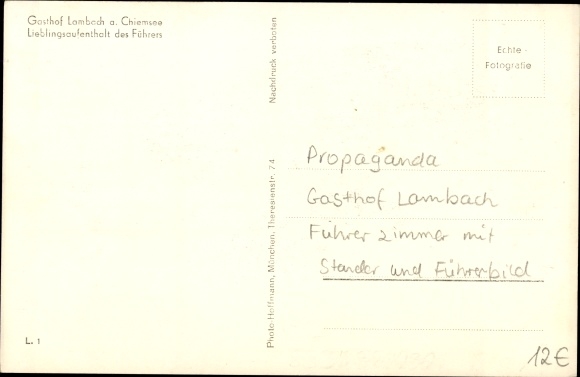 Gasthof Lambach a. Chiemsee
Lieblingsaufenthalt des Führers
Nachdruck verboten
Photo-Hoffmann, München, Theresienstr. 74
Echte
Fotografie
Propaganda
Gasthof Lambach
Führerzimmer mit
Stander und Führerbild
L. 1
12€